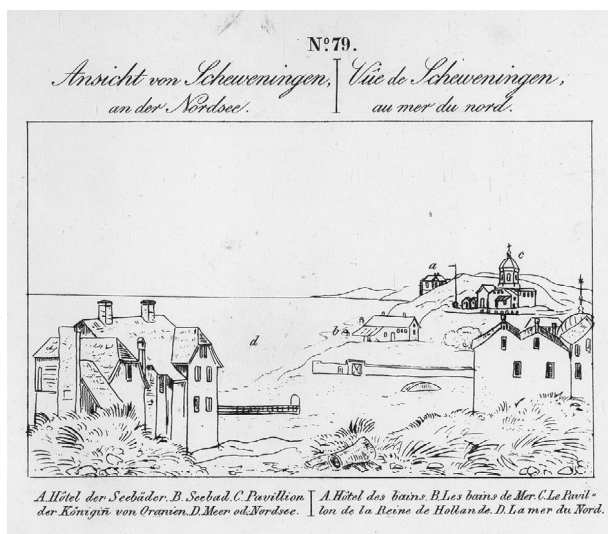 Nº 79.
Ansicht von Scheweningen,
an der Nordsee.
Vûe de Scheweningen,
au mer du nord.
a
c
b
d
A. Hôtel der Seebäder. B. Seebad. C. Pavillion
der Königin von Oranien. D. Meer od. Nordsee.
A. Hôtel des bains. B. Les bains de Mer. C. Le Pavil=
lon de la Reine de Hollande. D. La mer du Nord.